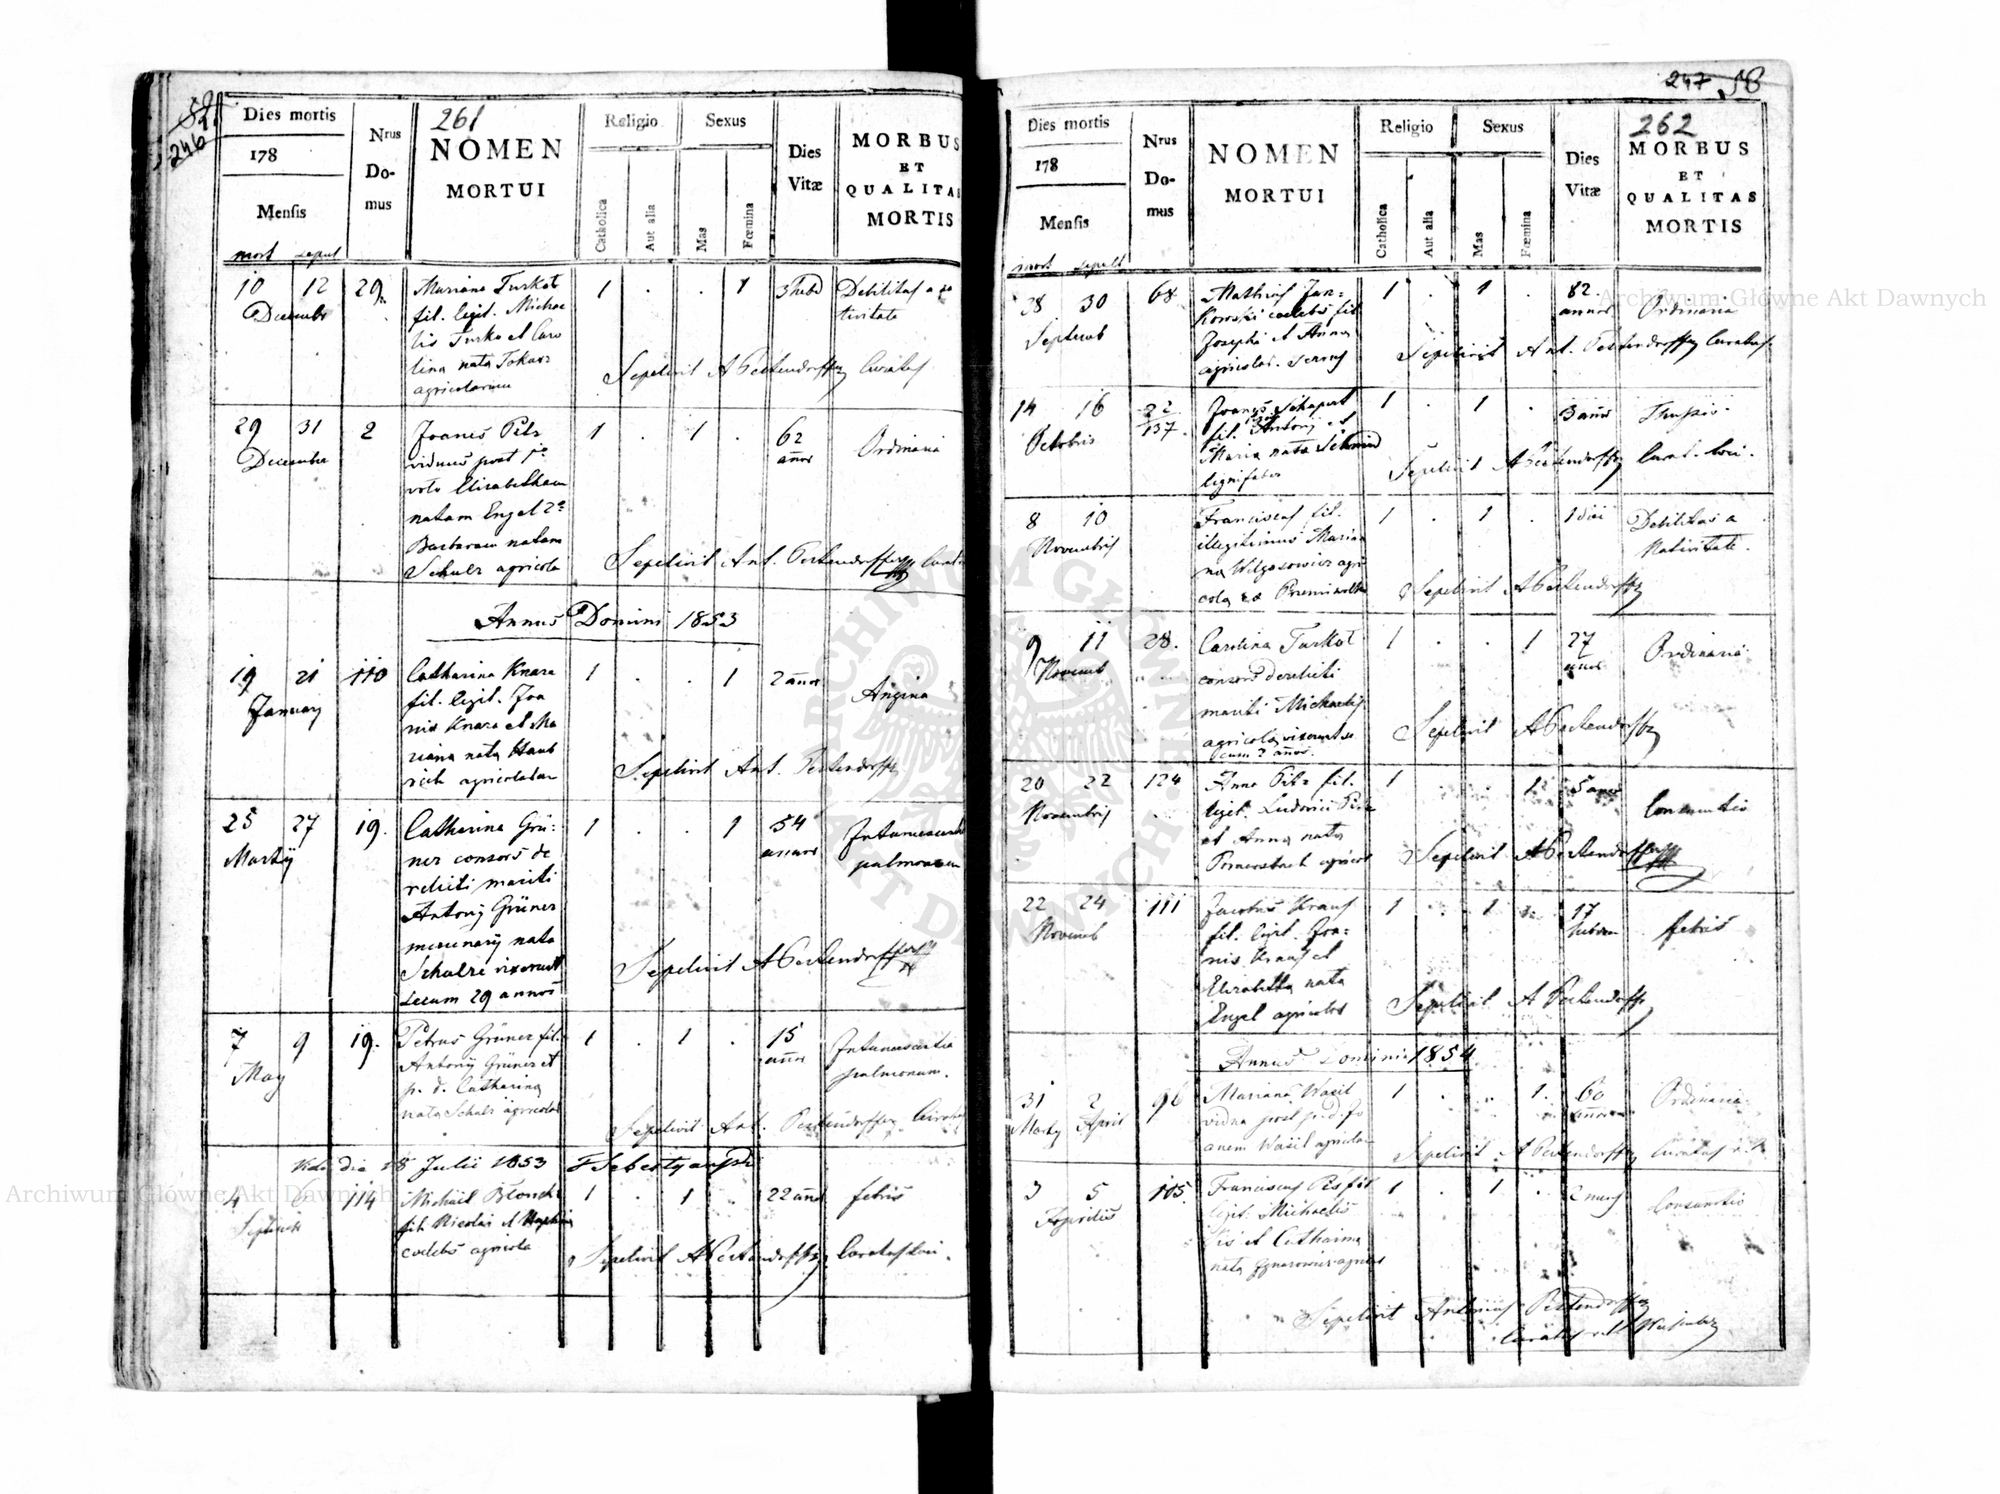 52
246
261
Dies mortis
178
Mensis
mort sepult
Nrus
Do-
mus
NOMEN
MORTUI
Religio
Catholica
Aut alia
Sexus
Mas
Fœmina
Dies
Vitæ
MORBUS
ET
QUALITAS
MORTIS
10 12 29.
Decembr
Mariana Turkot
fil. legit. Michae
lis Turko et Caro
lina nata Tokarz
agricolarum
1 . . 1
3 hebd
Debilitas a na
tivitate
Sepelivit A Pertendorffer Curatus
29 31 2
December
Joanes Pilz
viduus post 1o
voto Elisabetham
natam Engel 2o
Barbaram natam
Schulz agricola
1 . 1 .
62
annos
Ordinaria
Sepelivit Ant. Pertendorffer
Annus Domini 1853
19 21 110
January
Catharina Knara
fil. legit. Joa
nis Knara et Ma
riana nata Haub
rich agricolarum
1 . . 1
2 annos
Angina
Sepelivit Ant. Pertendorffer
25 27 19.
Martij
Catharina Grü-
ner consors de
relicti mariti
Antonij Grüner
mercenarij nata
Schulze vixerunt
secum 29 annos
1 . . 1
54
annos
Intumescentia
pulmonum
Sepelivit A Pertendorffer
7 9 19.
May
Petrus Grüner fil.
Antonij Grüner et
p. d. Catharina
nata Schulz agricolae
1 . 1 .
15
annos
Intumescentia
pulmonum.
Sepelivit Ant. Pertendorffer Curatus
Vidi die 18 Julii 1853
4 6 114
Septemb
Michael
fil. Nicolai et
caelebs agricola
1 . 1 .
22 anno
febris
Sepelivit A Pertendorffer Curatus loci.
247 58
262
Dies mortis
178
Mensis
mort sepult
Nrus
Do-
mus
NOMEN
MORTUI
Religio
Catholica
Aut alia
Sexus
Mas
Fœmina
Dies
Vitæ
MORBUS
ET
QUALITAS
MORTIS
28 30 68
Septemb
Mathias Jan-
kowski caelebs fil
Josephi et Anna
agricolar.
1 . 1 .
82
annos
Ordinaria
Sepelivit Ant. Pertendorffer Curatus
14 16 22
137
Octobris
Joanes Schapert
fil. Antonij et
Maria nata Schmid
lignifaber
1 . 1 .
3 annos
Sepelivit A Pertendorffer Curat. loci.
8 10
Novembris
Franciscus fil.
illegitimus Maria
na
1 . 1 .
1 diei
Debilitas a
Nativitate.
Sepelivit A Pertendorffer
9 11 28.
Novemb
Carolina Turkot
consors derelicti
mariti Michaelis
agricola vixerunt se
cum 7 annos.
1 . . 1
27
annos
Ordinaria
Sepelivit A Pertendorffer
20 22 124
Novembris
Anna Pilz fil.
legit. Ludovici Pilz
et Anna nata
1 . . 1
5 annos
Sepelivit A Pertendorffer
22 24 111
Novemb
Jacobus Kraus
fil. legit. Joa-
nis Kraus et
Elisabetha nata
Engel agricolae
1 . 1
17
hebdom
febris
Sepelivit A Pertendorffer
Annus Domini 1854
31 2 96
Marty April
Mariana Wasil
vidua post p. d. Jo
anem Wasil agricola
1 . . 1.
60
annorum
Ordinaria
Sepelivit A Pertendorffer Curatus
3 5 105.
Aprilis
Franciscus fil
legit. Michaelis
et Catharina
nata
1 . 1 .
2 mens
Sepelivit Antonius Pertendorffer
Curatus
Archiwum Główne Akt Dawnych
Archiwum Główne Akt Dawnych
ARCHIWUM GŁÓWNE
AKT DAWNYCH